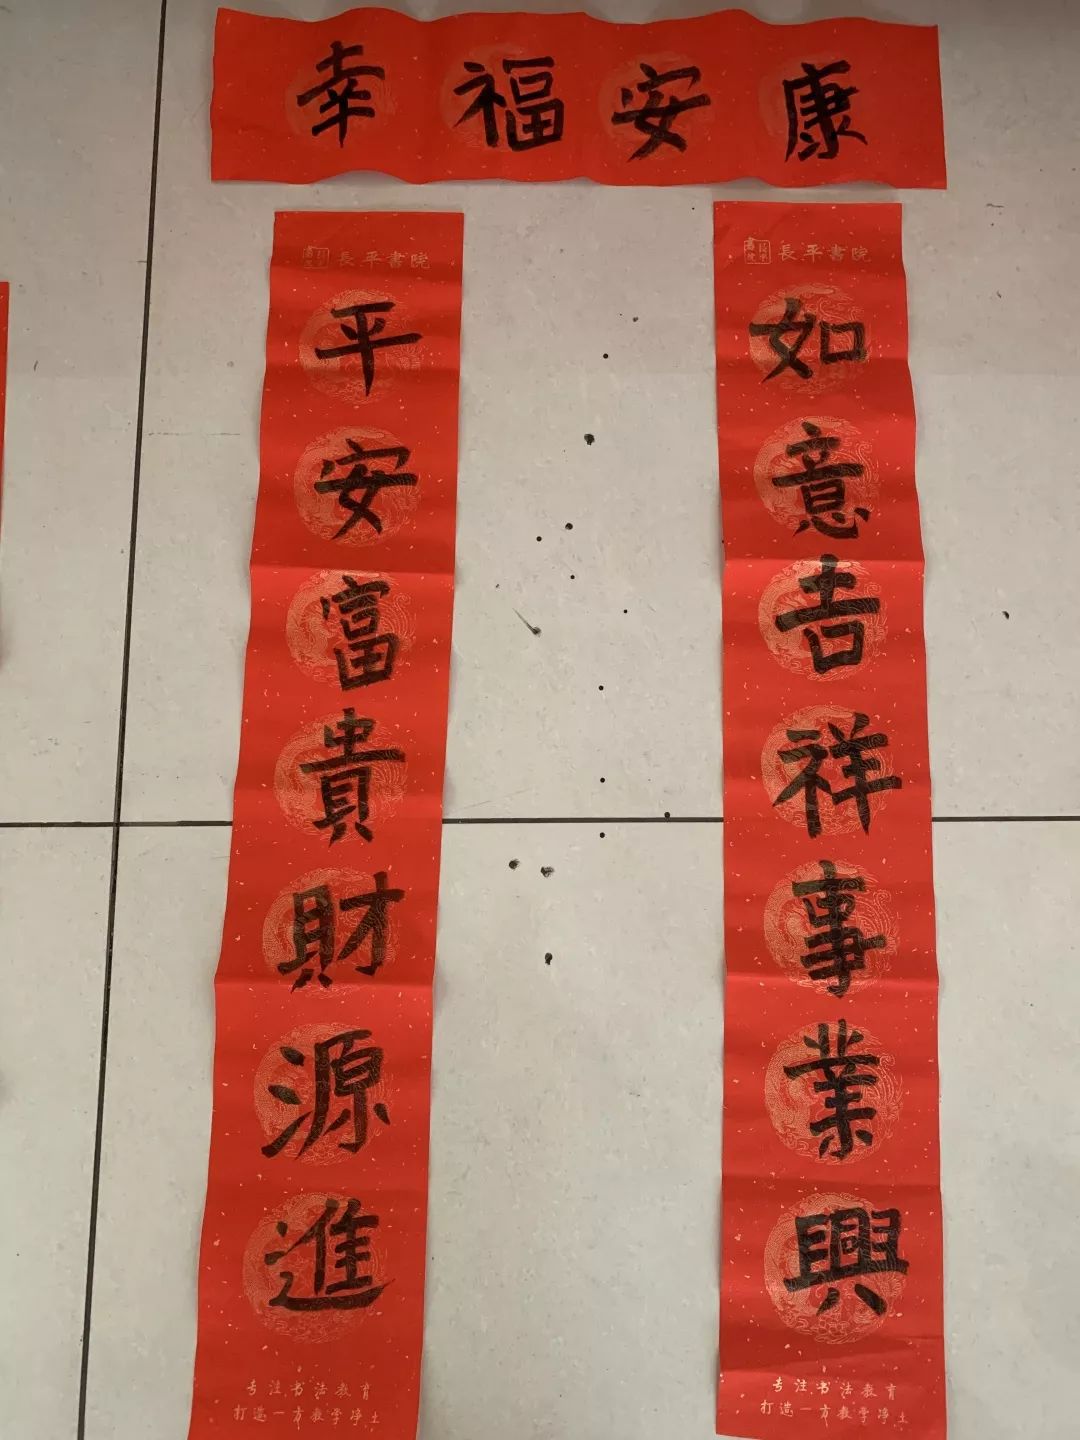 幸福安康
長平書院
平安富貴財源進
专注书法教育
打造一方教学净土
長平書院
如意吉祥事業興
专注书法教育
打造一方教学净土